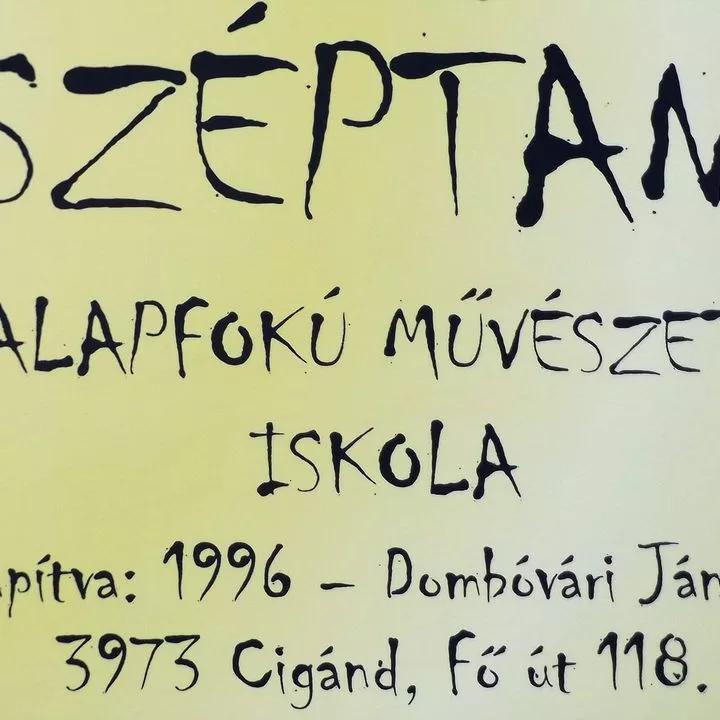 SZÉPTAN
ALAPFOKÚ MŰVÉSZET
ISKOLA
pítva: 1996 – Dombóvári Ján
3973 Cigánd, Fő út 118.